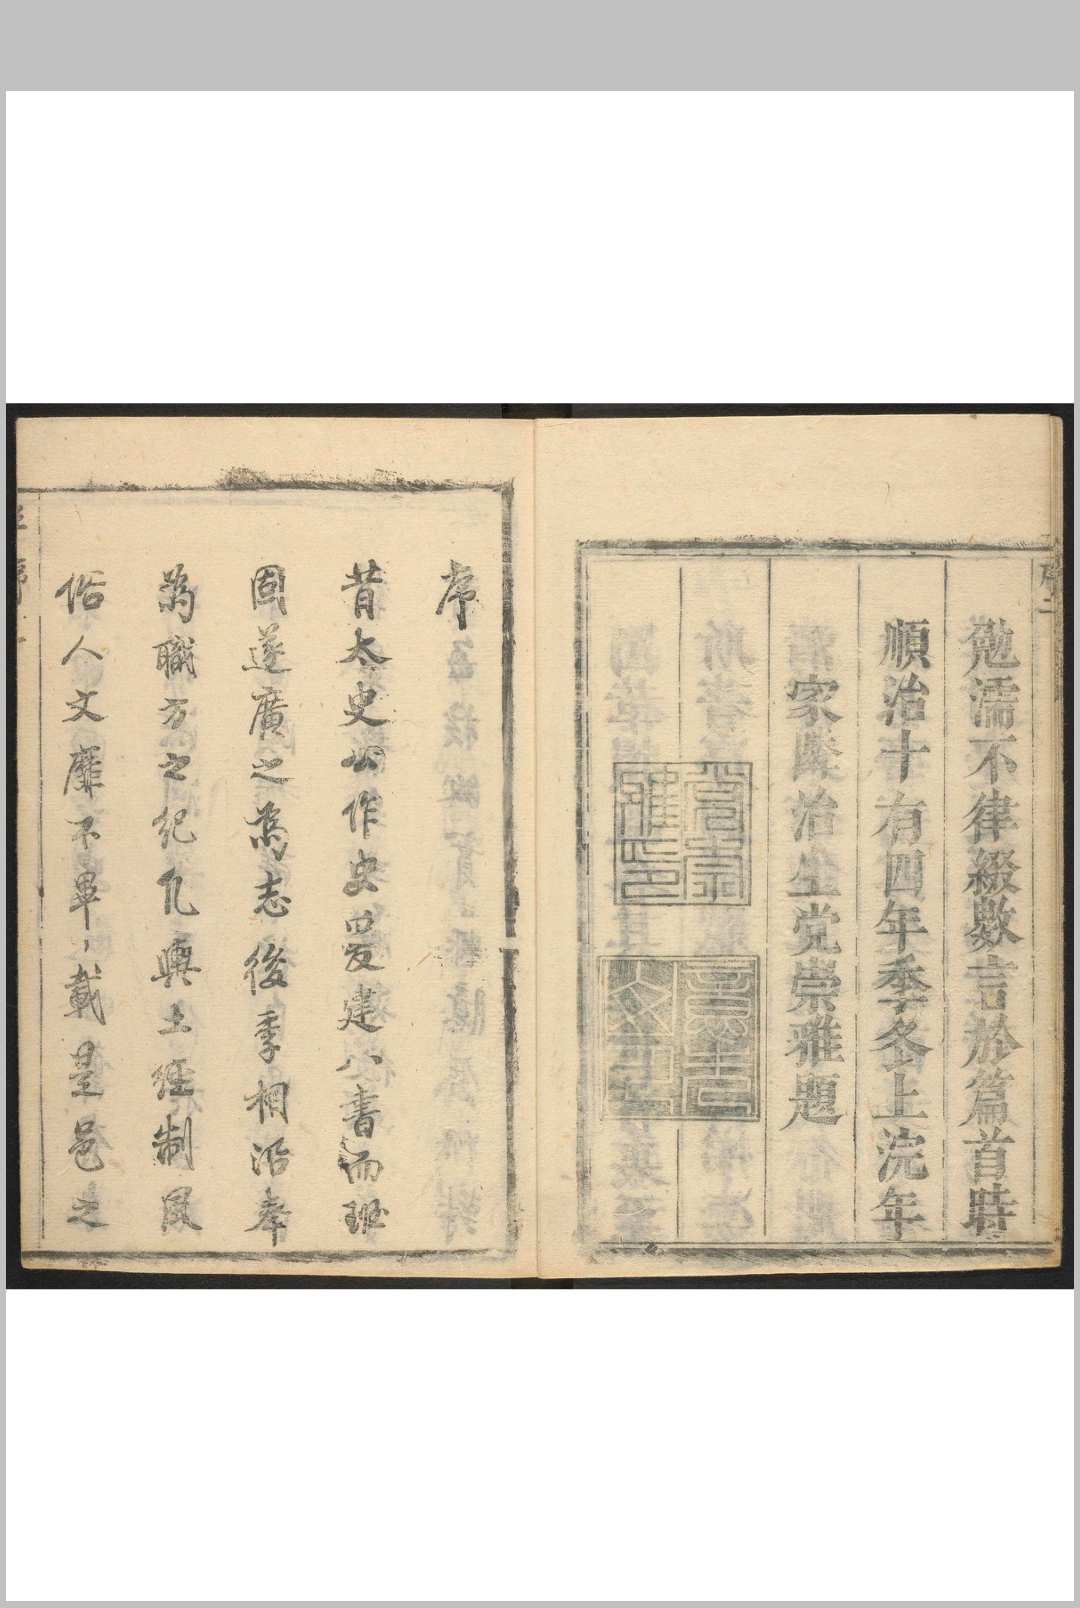 序二
勉濡不律綴數言於篇首時
順治十有四年季冬上浣年
家 治生党崇雅題
党崇雅印
序
昔太史公作史爰建八書而班
固遂廣之為志後季相沿奉
為職方之紀凡輿土經制風
俗人文靡不畢載是邑之
序